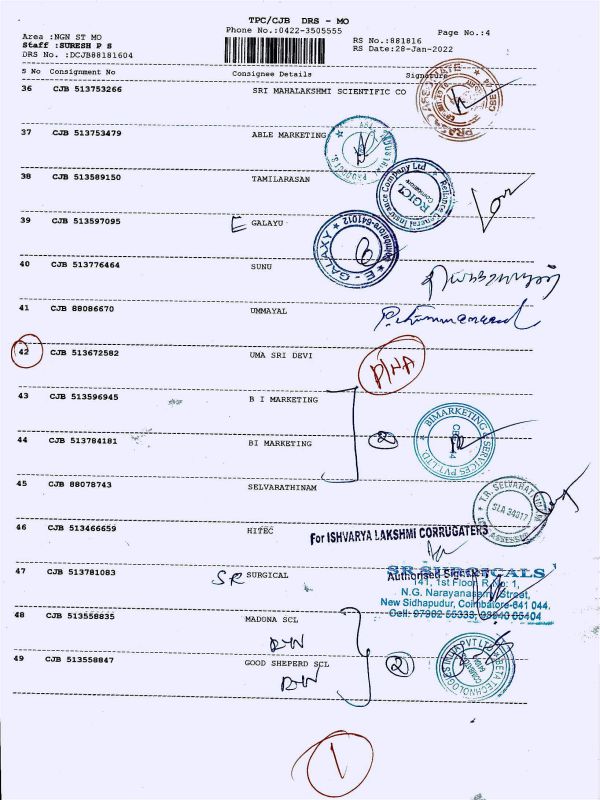 TPC/CJB DRS - MO
Phone No.:0422-3505555
Page No.:4
Area :NGN ST MO
Staff :SURESH P S
DRS No. :DCJB88181604
RS No.:881816
RS Date:28-Jan-2022
S No Consignment No Consignee Details Signature
36 CJB 513753266 SRI MAHALAKSHMI SCIENTIFIC CO
37 CJB 513753479 ABLE MARKETING
38 CJB 513589150 TAMILARASAN
Reliance General Insurance Company Ltd
RGICL
39 CJB 513597095 E GALAYU
E - GALAXY
40 CJB 513776464 SUNU
41 CJB 88086670 UMMAYAL
42 CJB 513672582 UMA SRI DEVI
43 CJB 513596945 B I MARKETING
44 CJB 513784181 BI MARKETING
2
BI MARKETING & SERVICES PVT LTD
45 CJB 88078743 SELVARATHINAM
T.R. SELVARATHINAM
SLA 34017
46 CJB 513466659 HITEC
For ISHVARYA LAKSHMI CORRUGATERS
Authorised Signatory
47 CJB 513781083 SR SURGICAL
SR SURGICALS
141, 1st Floor, R.No: 1,
N.G. Narayanasamy Street,
New Sidhapudur, Coimbatore-641 044.
48 CJB 513558835 MADONA SCL
49 CJB 513558847 GOOD SHEPERD SCL
2
1